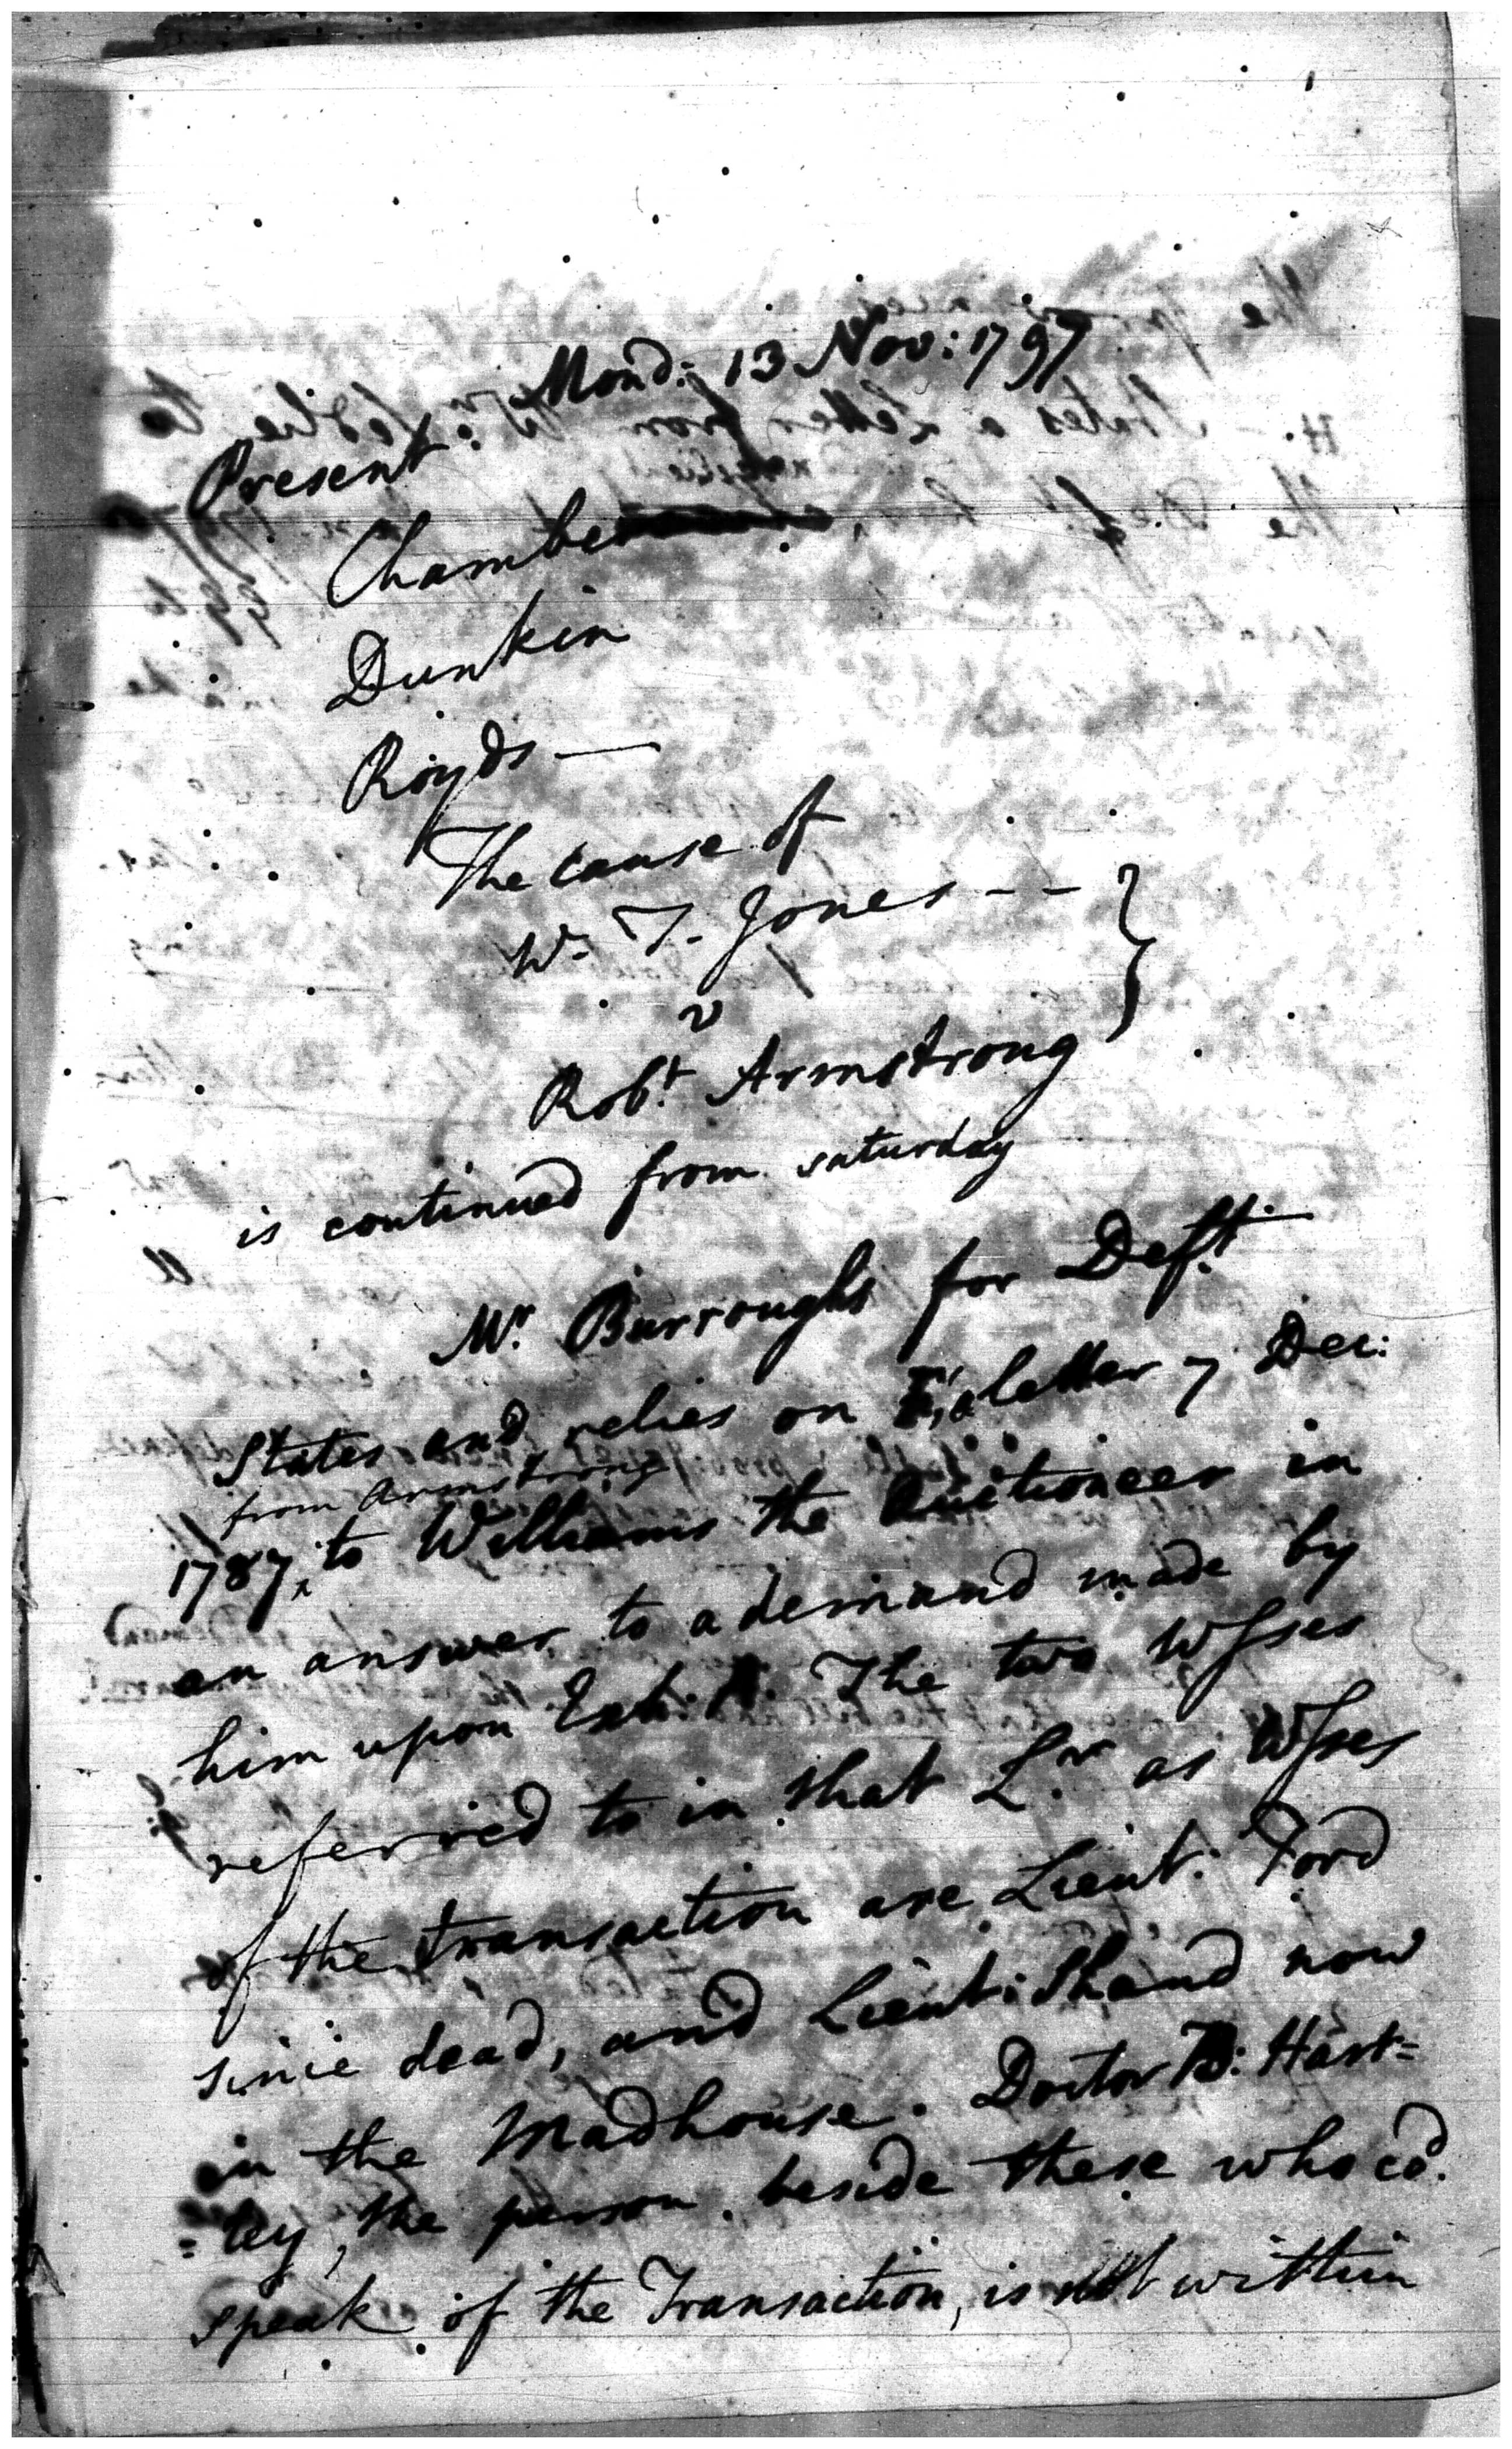 Mond: 13 Nov: 1797
Present
Chambers
Dunkin
Royds —
The cause of
W. T. Jones - -
v
Robt. Armstrong
is continued from saturday
Mr. Burroughs for Deft.
States and relies on E, a letter 7 Dec:
from Armstrong
1787, to Williams the Auctioneer in
an answer to a demand made by
him upon Exh: A. The two Wsses
referred to in that Lr. as Wsses
of the transaction are Lieut: Ford
since dead, and Lieut: Shand now
in the Madhouse. Doctor B: Hart=
=ley, the person beside these who cd.
speak of the Transaction, is not within